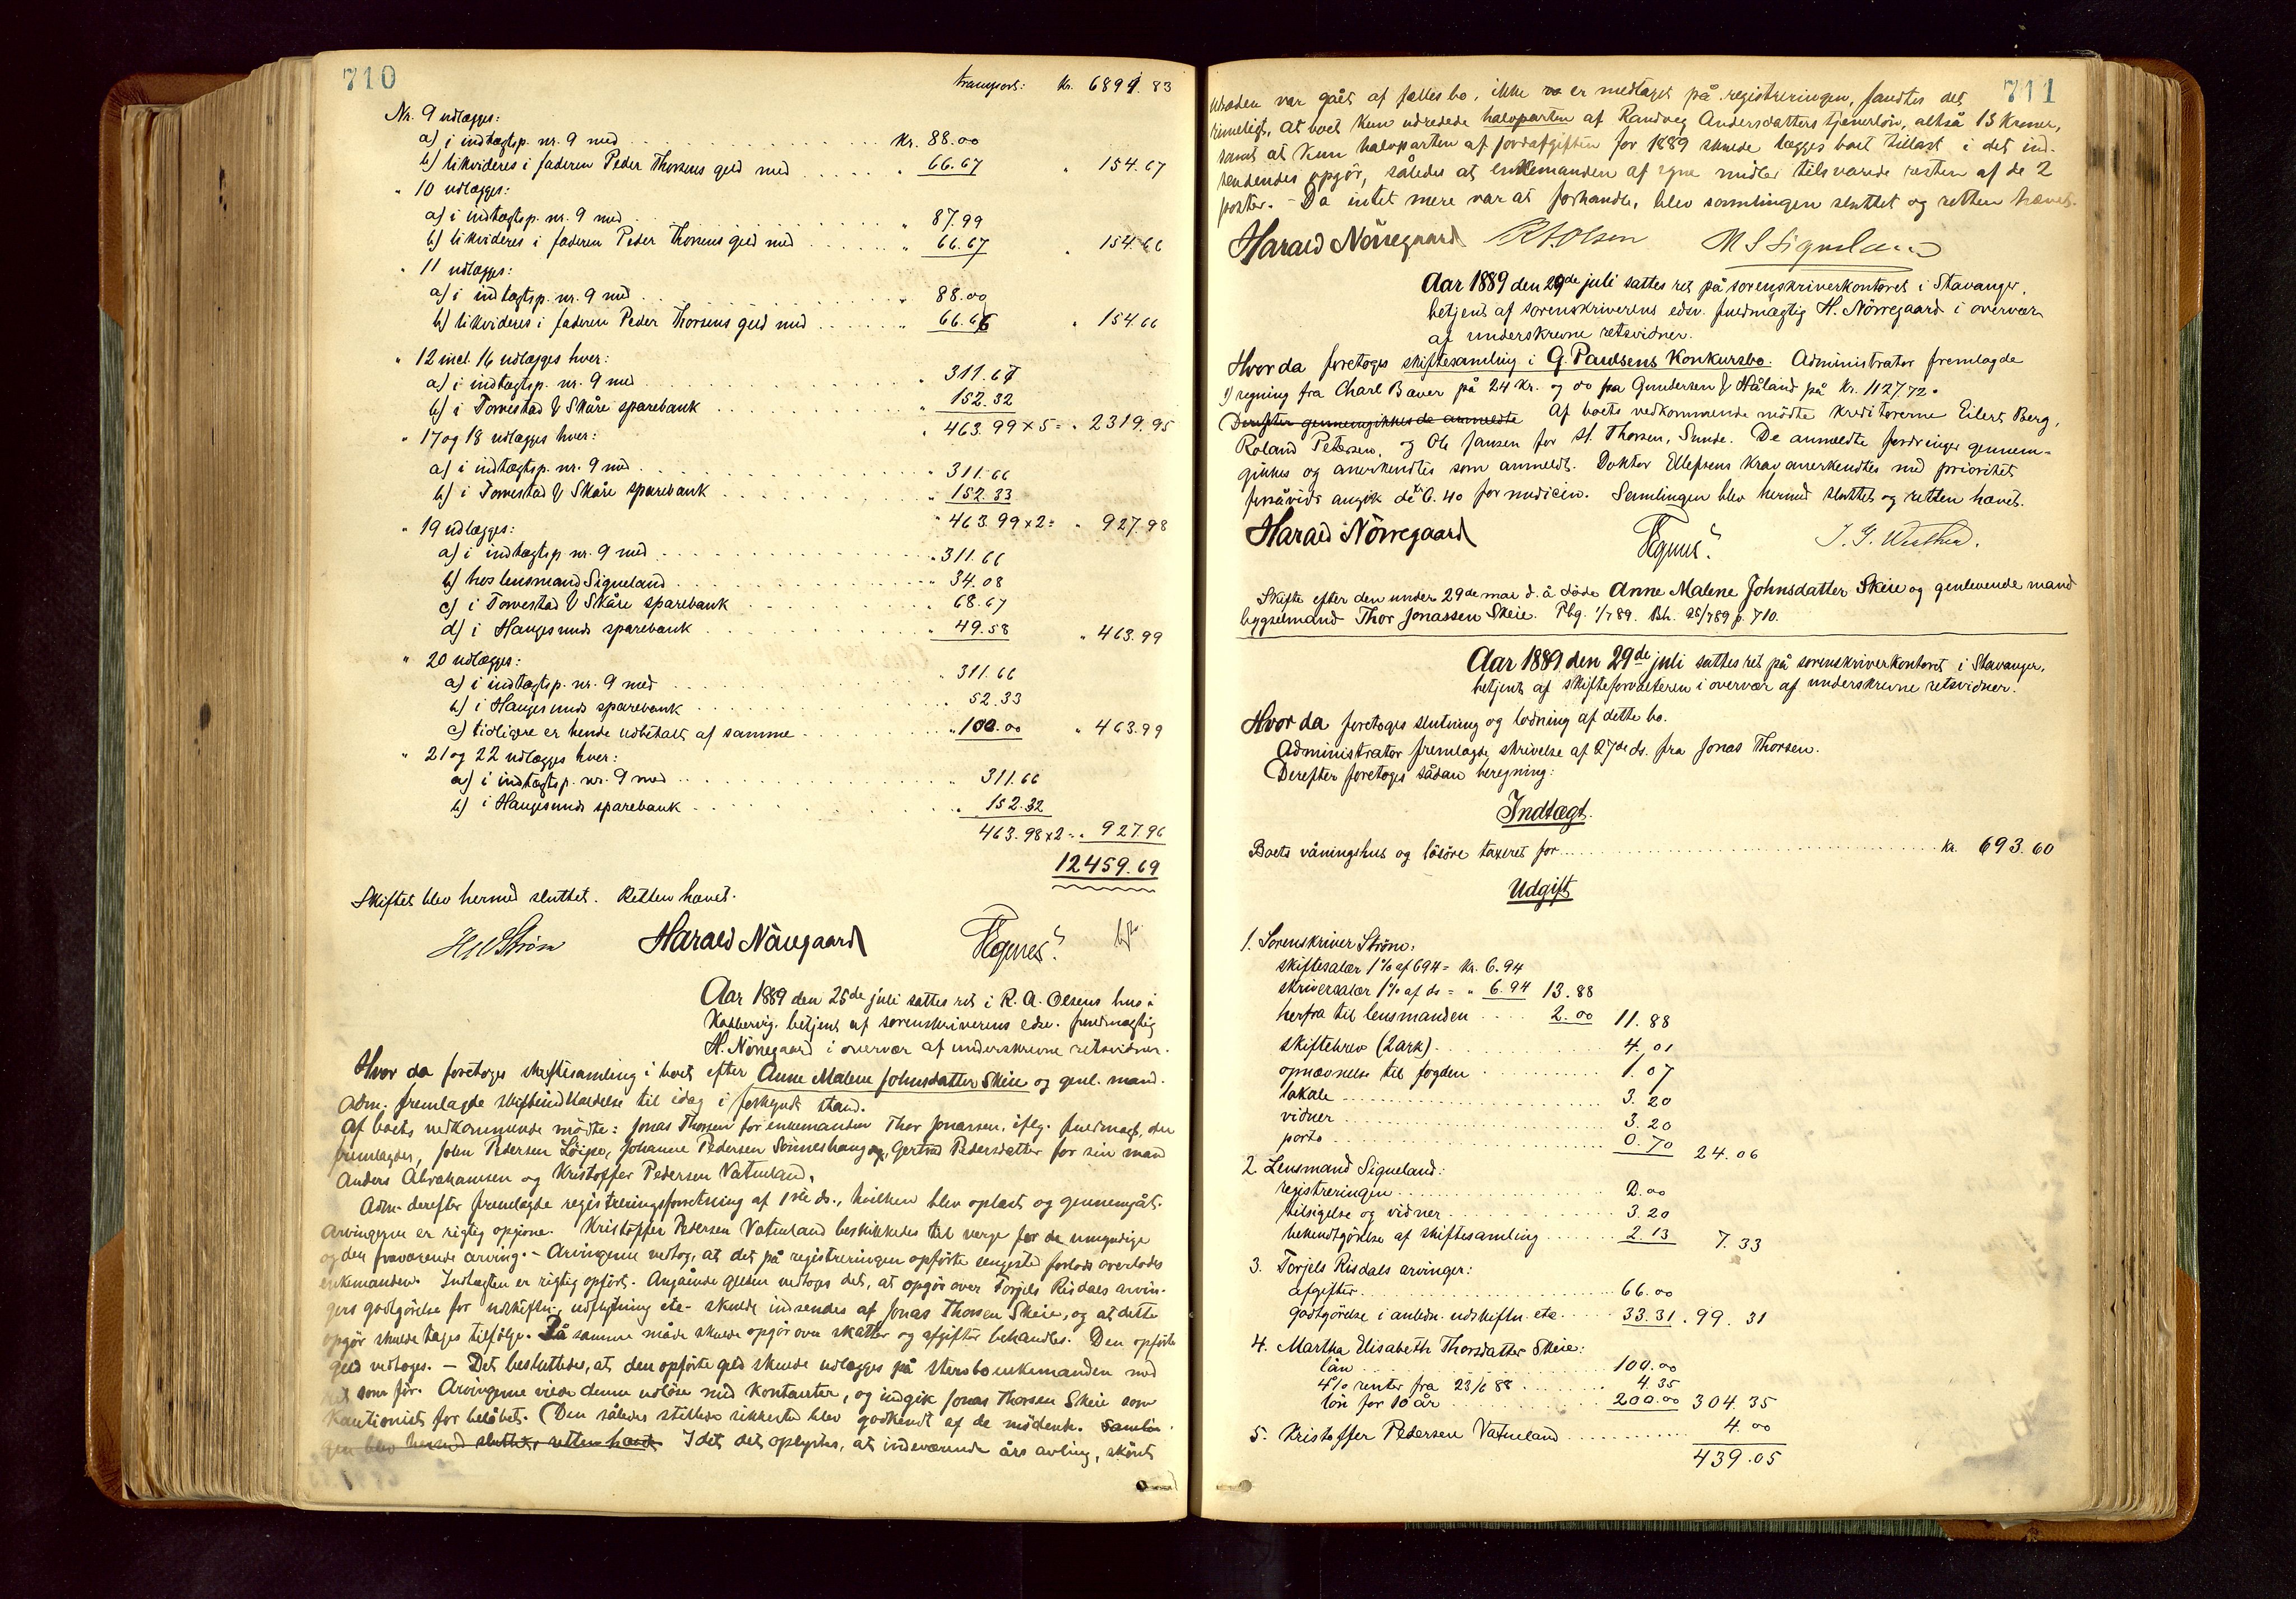 710
transport: Kr. 6891.83
Nr. 9 udlægges:
a) i indtægtsp. nr. 9 med Kr. 88.00
b) likvideres i faderen Peder Thorsens gjeld med " 66.67 " 154.67
" 10 udlægges:
a) i indtægtsp. nr. 9 med " 87.99
b) likvideres i faderen Peder Thorsens gjeld med " 66.67 " 154.66
" 11 udlægges:
a) i indtægtsp. nr. 9 med " 88.00
b) likvideres i faderen Peder Thorsens gjeld med " 66.66 " 154.66
" 12 incl. 16 udlægges hver:
a) i indtægtsp. nr. 9 med " 311.67
b) i Torvestad & Skåre sparebank " 152.32
" 463.99 x 5 = " 2319.95
" 17 og 18 udlægges hver:
a) i indtægtsp. nr. 9 med " 311.66
b) i Torvestad & Skåre sparebank " 152.33
" 463.99 x 2 = " 927.98
" 19 udlægges:
a) i indtægtsp. nr. 9 med " 311.66
b) hos lensmand Sigueland " 34.08
c) i Torvestad & Skåre sparebank " 68.67
d) i Haugesunds sparebank " 49.58 " 463.99
" 20 udlægges:
a) i indtægtsp. nr. 9 med " 311.66
b) i Haugesunds sparebank " 52.33
c) tidligere er hende udbetalt af samme " 100.00 " 463.99
" 21 og 22 udlægges hver:
a) i indtægtsp. nr. 9 med " 311.66
b) i Haugesunds sparebank " 152.32
463.98 x 2 = " 927.96
12459.69
Skiftet blev hermed sluttet. Retten hævet.
Harald Nörregaard
Aar 1889 den 25de juli sattes ret i R. A. Olsens hus i
betjent af sorenskriverens edsv. fuldmægtig
H. Nörregaard i overvær af underskrevne retsvidner.
Hvor da foretoges skiftesamling i boet efter Anne Malene Johnsdatter Skeie og genl. mand.
Adm. fremlagde skifteindkaldelse til idag i forkyndt stand.
Af boets vedkommende mödte: Jonas Thorsen for enkemanden Thor Jonassen, iflg. fuldmagt, der
fremlagdes, John Pedersen Johanne Pedersen og Gertrud Pedersdatter for sin mand
Anders Abrahamsen og Kristoffer Pedersen Vatneland.
Adm. derefter fremlagde registreringsforretning af 1ste ds., hvilken blev oplæst og gennemgåt.
Arvingerne er rigtig opgivne. Kristoffer Pedersen Vatneland beskikkedes til verge for de umyndige
og den fraværende arving. – Arvingerne vedtog, at det på registreringen opförte sengested forlods overlodes
enkemanden. Indtægten er rigtig opfört. Angående gjelden vedtoges det, at opgör over Torjels Risdals arvin-
gers godtgörelse for udskiftn., udflytning etc. skulde indsendes af Jonas Thorsen Skeie, og at dette
opgör skulde tages tilfölge. På samme måde skulde opgör over skatter og afgifter behandles. Den opförte
gjeld vedtoges. – Det besluttedes, at den opförte gjeld skulde udlægges på stervboenkemanden med
ret som för. Arvingerne vilde denne udlöse med kontanter, og indgik Jonas Thorsen Skeie som
kautionist for belöbet. Den således stillede sikkerhed blev godkendt af de mödende. Samlin-
gen blev hermed sluttet, retten hævet. Idet det oplystes, at indeværende års avling, skönt
711
var gået af fælles bo, ikke er medtaget på registreringen, fandtes det
rimeligt, at boet kun udredede halvparten af Randveg Andersdatters tjenerlön, altså 13 kroner,
samt at kun halvparten af jordafgiften for 1889 skulde lægges boet tillast i det ind-
sendendes opgör, således at enkemanden af egne midler tilsvarede resten af de 2
poster. – Da intet mere var at forhandle, blev samlingen sluttet og retten hævet.
Harald Nörregaard R A Olsen M S Sigueland
Aar 1889 den 29de juli sattes ret på sorenskriverkontoret i Stavanger,
betjent af sorenskriverens edsv. fuldmægtig H. Nörregaard i overvær
af underskrevne retsvidner.
Hvor da foretoges skiftesamling i G. Paulsens Konkursbo. Administrator fremlagde
regning fra Charl Baver på 24 kr. og fra Gundersen & Håland på kr. 1127.72.
Derefter gennemgikkes de anmeldte Af boets vedkommende mödte kreditorerne Eilert Berg,
Roland Petersen, og Ole Jansen for St. Thorsen, Sunde. De anmeldte fordringer gennem-
gikkes og anerkendtes som anmeldt. Doktor Ellefsens krav anerkendtes med prioritet
forsåvidt angik de kr. 6.40 for medicin. Samlingen blev hermed sluttet og retten hævet.
Harald Nörregaard
Skifte efter den under 29de mai d. å. döde Anne Malene Johnsdatter Skeie og genlevende mand
bygselmand Thor Jonassen Skeie. Pbg. 1/7 89. Bh. 25/7 89 p. 710.
Aar 1889 den 29de juli sattes ret på sorenskriverkontoret i Stavanger,
betjent af skifteforvalteren i overvær af underskrevne retsvidner.
Hvor da foretoges slutning og lodning af dette bo.
Administrator fremlagde skrivelse af 27de ds. fra Jonas Thorsen.
Derefter foretoges sådan beregning:
Indtægt.
Boets våningshus og lösöre taxeret for kr. 693.60
Udgift
1. Sorenskriver Ström:
skiftesalær 1% af 694 = kr. 6.94
skriversalær 1% af ds = " 6.94 13.88
herfra til lensmanden 2.00 11.88
skiftebrev (2 ark) 4.01
opnævnelse til fogden 1.07
lokale 3.20
vidner 3.20
porto 0.70 24.06
2. Lensmand Sigueland:
registreringen 2.00
tilsigelse og vidner 3.20
bekendtgörelse af skiftesamling 2.13 7.33
3. Torjels Risdals arvinger:
afgifter 66.00
godtgörelse i anledn. udskiftn. etc. 33.31 . 99.31
4. Martha Elisabeth Thorsdatter Skeie:
lån 100.00
4% renter fra 23/6 88 4.35
lön for 10 år 200.00 304.35
5. Kristoffer Pedersen Vatneland 4.00
439.05